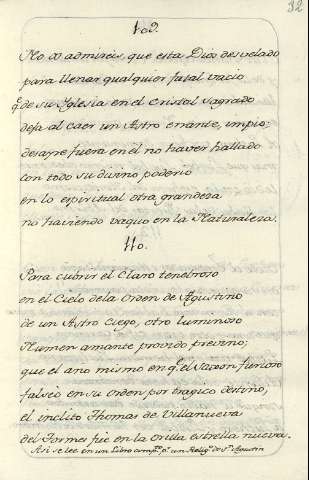 32
109.
No os admireis, que esta Dios desvelado
para llenar qualquier fatal vacio
q.e de su Iglesia en el cristal sagrado
deja al caer un Astro errante, impio:
desayre fuera en èl no haver hallado
con todo su divino poderio
en lo espiritual otra grandeza
no haviendo vaquo en la Naturaleza.
110.
Para cubrir el Claro tenebroso
en el Cielo dela Orden de Agustino
de un Astro ciego, otro luminoso
Numen amante provido previno;
que el ano mismo en q.e el Saxon furioso
falseò en su orden por tragico destino,
el inclito Thomas de Villanueva
del Tormes fue en la orilla estrella nueva.
Asi se lee en un Libro comp.to p.r un Relig.o de S.n Agustin